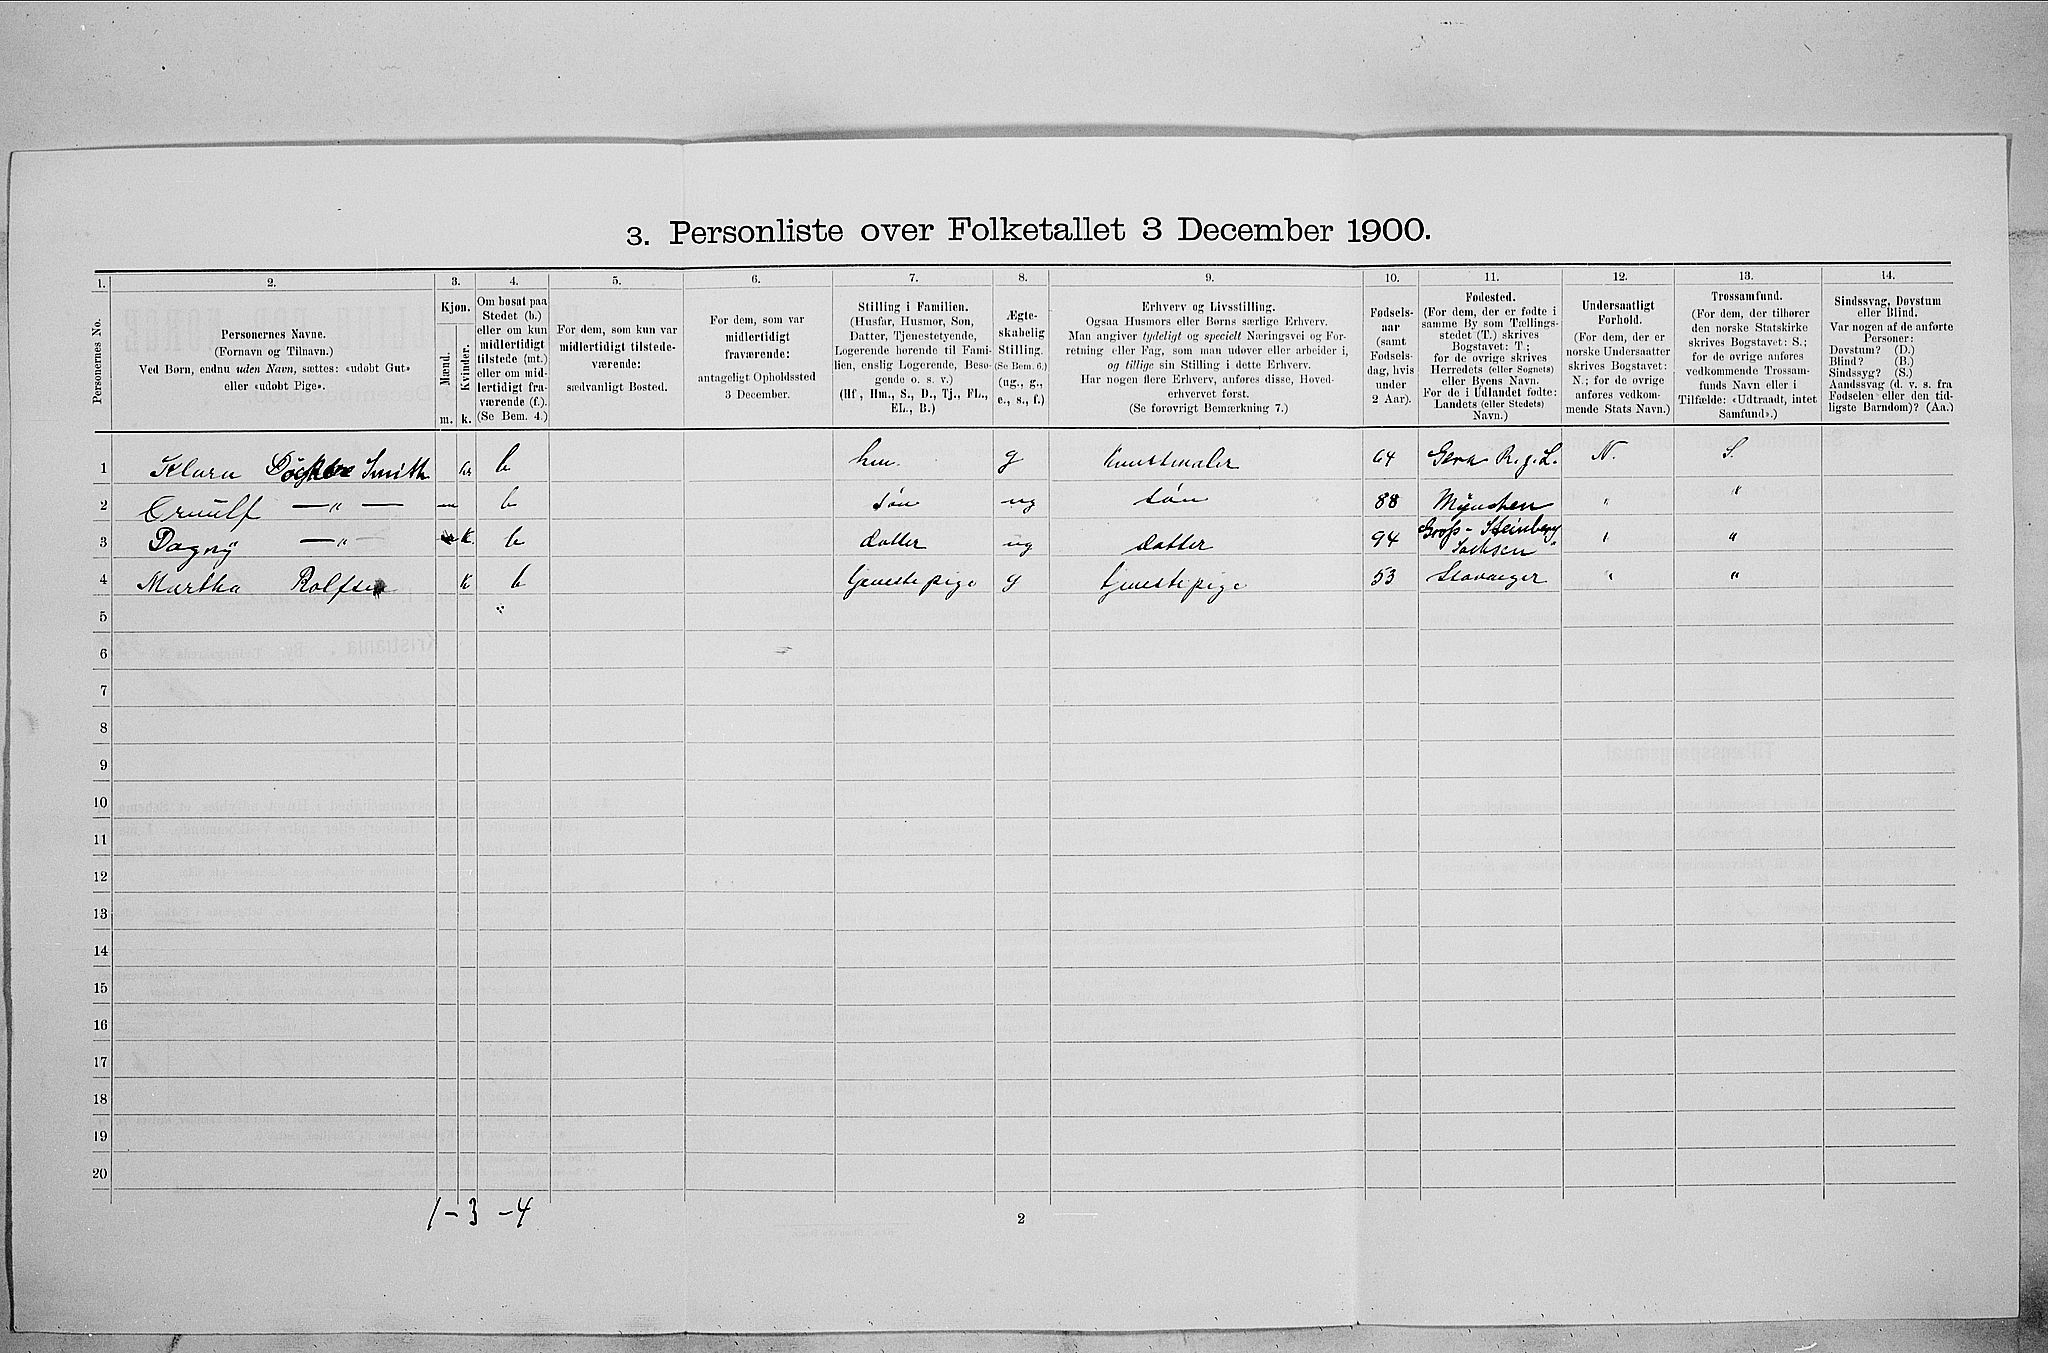 3. Personliste over Folketallet 3 December 1900.
1. 2. 3. 4. 5. 6. 7. 8. 9. 10. 11. 12. 13. 14.
Personernes No.
Personernes Navne.
(Fornavn og Tilnavn.)
Ved Børn, endnu uden Navn, sættes: «udøbt Gut»
eller «udøbt Pige».
Kjøn.
Mænd.
Kvinder.
m. k.
Om bosat paa
Stedet (b.)
eller om kun
midlertidigt
tilstede (mt.)
eller om mid-
lertidigt fra-
værende (f.).
(Se Bem. 4.)
For dem, som kun var
midlertidigt tilstede-
værende:
sædvanligt Bosted.
For dem, som var
midlertidigt
fraværende:
antageligt Opholdssted
3 December.
Stilling i Familien.
(Husfar, Husmor, Søn,
Datter, Tjenestetyende,
Logerende hørende til Fami-
lien, enslig Logerende, Besø-
gende o. s. v.)
(Hf, Hm., S., D., Tj., FL.,
EL., B.)
Ægte-
skabelig
Stilling.
(Se Bem. 6.)
(ug., g.,
e., s., f.)
Erhverv og Livsstilling.
Ogsaa Husmors eller Børns særlige Erhverv.
Man angiver tydeligt og specielt Næringsvei og For-
retning eller Fag, som man udøver eller arbeider i,
og tillige sin Stilling i dette Erhverv.
Har nogen flere Erhverv, anføres disse, Hoved-
erhvervet først.
(Se forøvrigt Bemærkning 7.)
Fødsels-
aar
(samt
Fødsels-
dag, hvis
under
2 Aar).
Fødested.
(For dem, der er fødte i
samme By som Tællings-
stedet (T.) skrives
Bogstavet: T;
for de øvrige skrives
Herredets (eller Sognets)
eller Byens Navn.
For de i Udlandet fødte:
Landets (eller Stedets)
Navn.)
Undersaatligt
Forhold.
(For dem, der er
norske Undersaatter
skrives Bogstavet:
N.; for de øvrige
anføres vedkom-
mende Stats Navn.)
Trossamfund.
(For dem, der tilhører
den norske Statskirke
skrives Bogstavet: S.;
for de øvrige anføres
vedkommende Trossam-
funds Navn eller i
Tilfælde: «Udtraadt, intet
Samfund».)
Sindssvag, Døvstum
eller Blind.
Var nogen af de anførte
Personer:
Døvstum? (D.)
Blind? (B.)
Sindssyg? (S.)
Aandssvag (d. v. s. fra
Fødselen eller den tid-
ligste Barndom)? (Aa.)
1 Klara Smith b hm. g Kunstmaler 64 Gera R. j. L. N. S.
2 Ørnulf — " — m b søn ug søn 88 München " "
3 Dagny — " — k. b datter ug datter 94 Gross-Steinberg
Sachsen " " "
4 Martha Rolfsen k b tjenestepige g tjenestepige 53 Stavanger " "
5
6
7
8
9
10
11
12
13
14
15
16
17
18
19
20
1 – 3 – 4
2